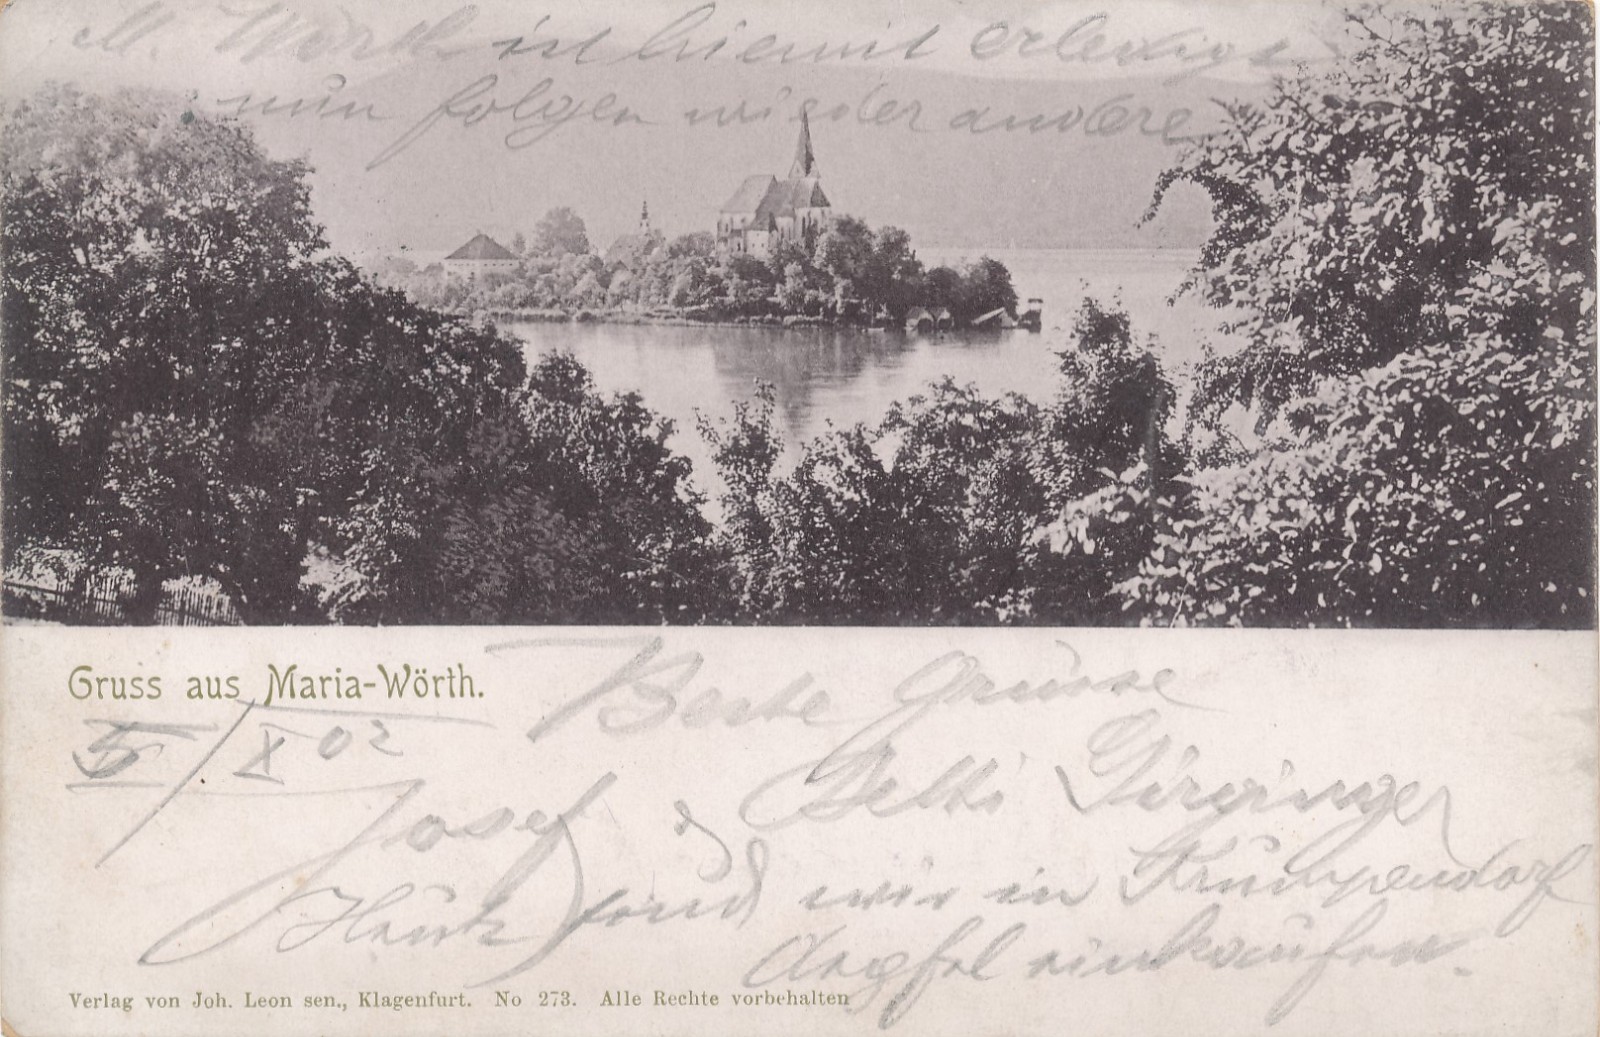 M. Wörth ist hiemit erledigt
nun folgen wieder andere
Gruss aus Maria-Wörth.
Beste Grüsse
5/X 02
Josef & Betti Girginger
wir in Krumpendorf
Aepfel einkaufen.
Verlag von Joh. Leon sen., Klagenfurt. No 273. Alle Rechte vorbehalten